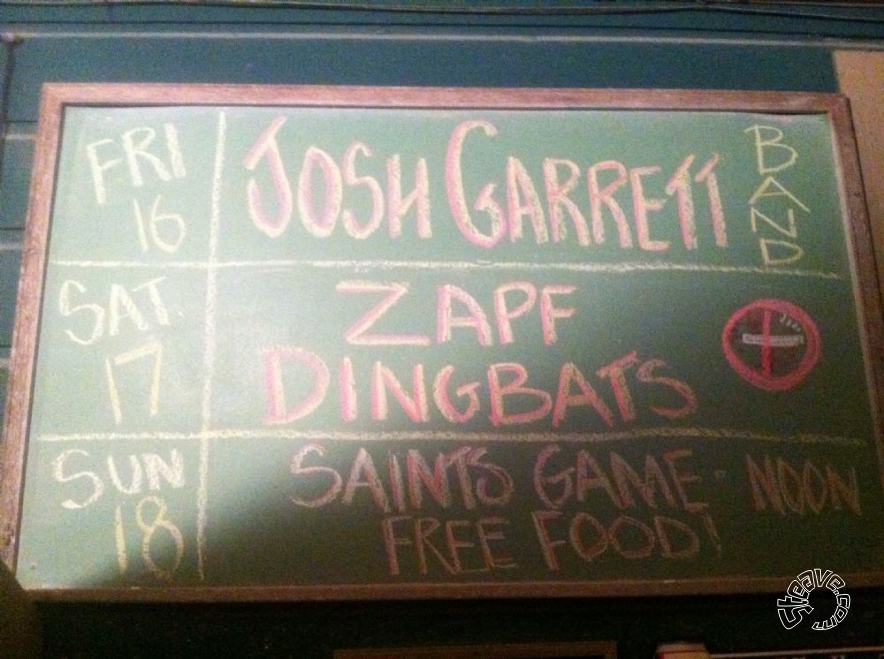 FRI
16
JOSH GARRETT
BAND
SAT.
17
ZAPF
DINGBATS
SUN
18
SAINTS GAME - NOON
FREE FOOD!
Steave.com